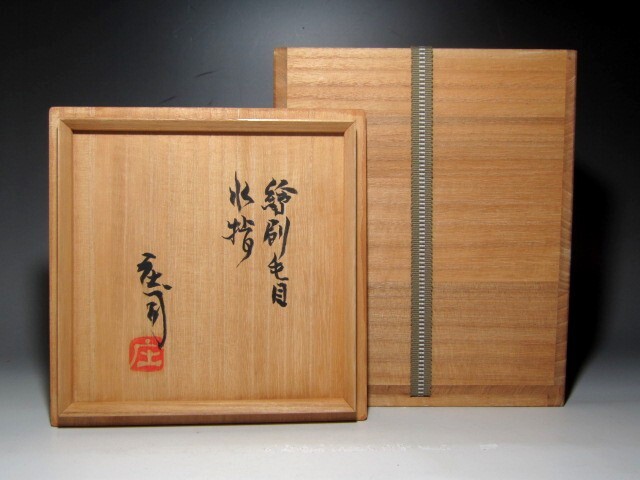 繪刷毛目
水指
庄司
庄